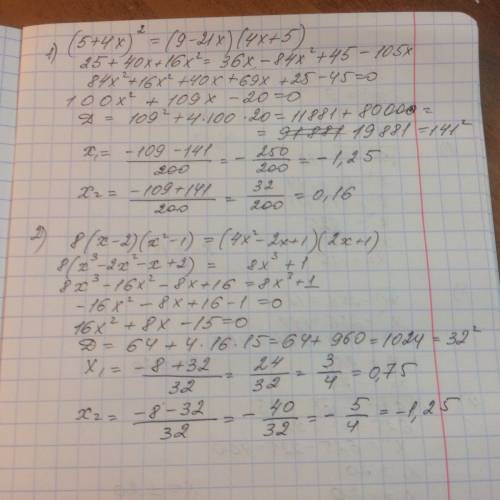 1) (5+4x)² = (9-21x)(4x+5)
25+40x+16x² = 36x-84x²+45-105x
84x²+16x²+40x+69x+25-45=0
100x²+109x-20=0
D = 109²+4·100·20=11881+8000=
= 19881=141²
x₁= (-109-141)/200 = -250/200 = -1,25
x₂= (-109+141)/200 = 32/200 = 0,16
2) 8(x-2)(x²-1)=(4x²-2x+1)(2x+1)
8(x³-2x²-x+2) = 8x³+1
8x³-16x²-8x+16=8x³+1
-16x²-8x+16-1=0
16x²+8x-15=0
D = 64+4·16·15=64+960=1024=32²
x₁= (-8+32)/32 = 24/32 = 3/4 = 0,75
x₂= (-8-32)/32 = -40/32 = -5/4 = -1,25